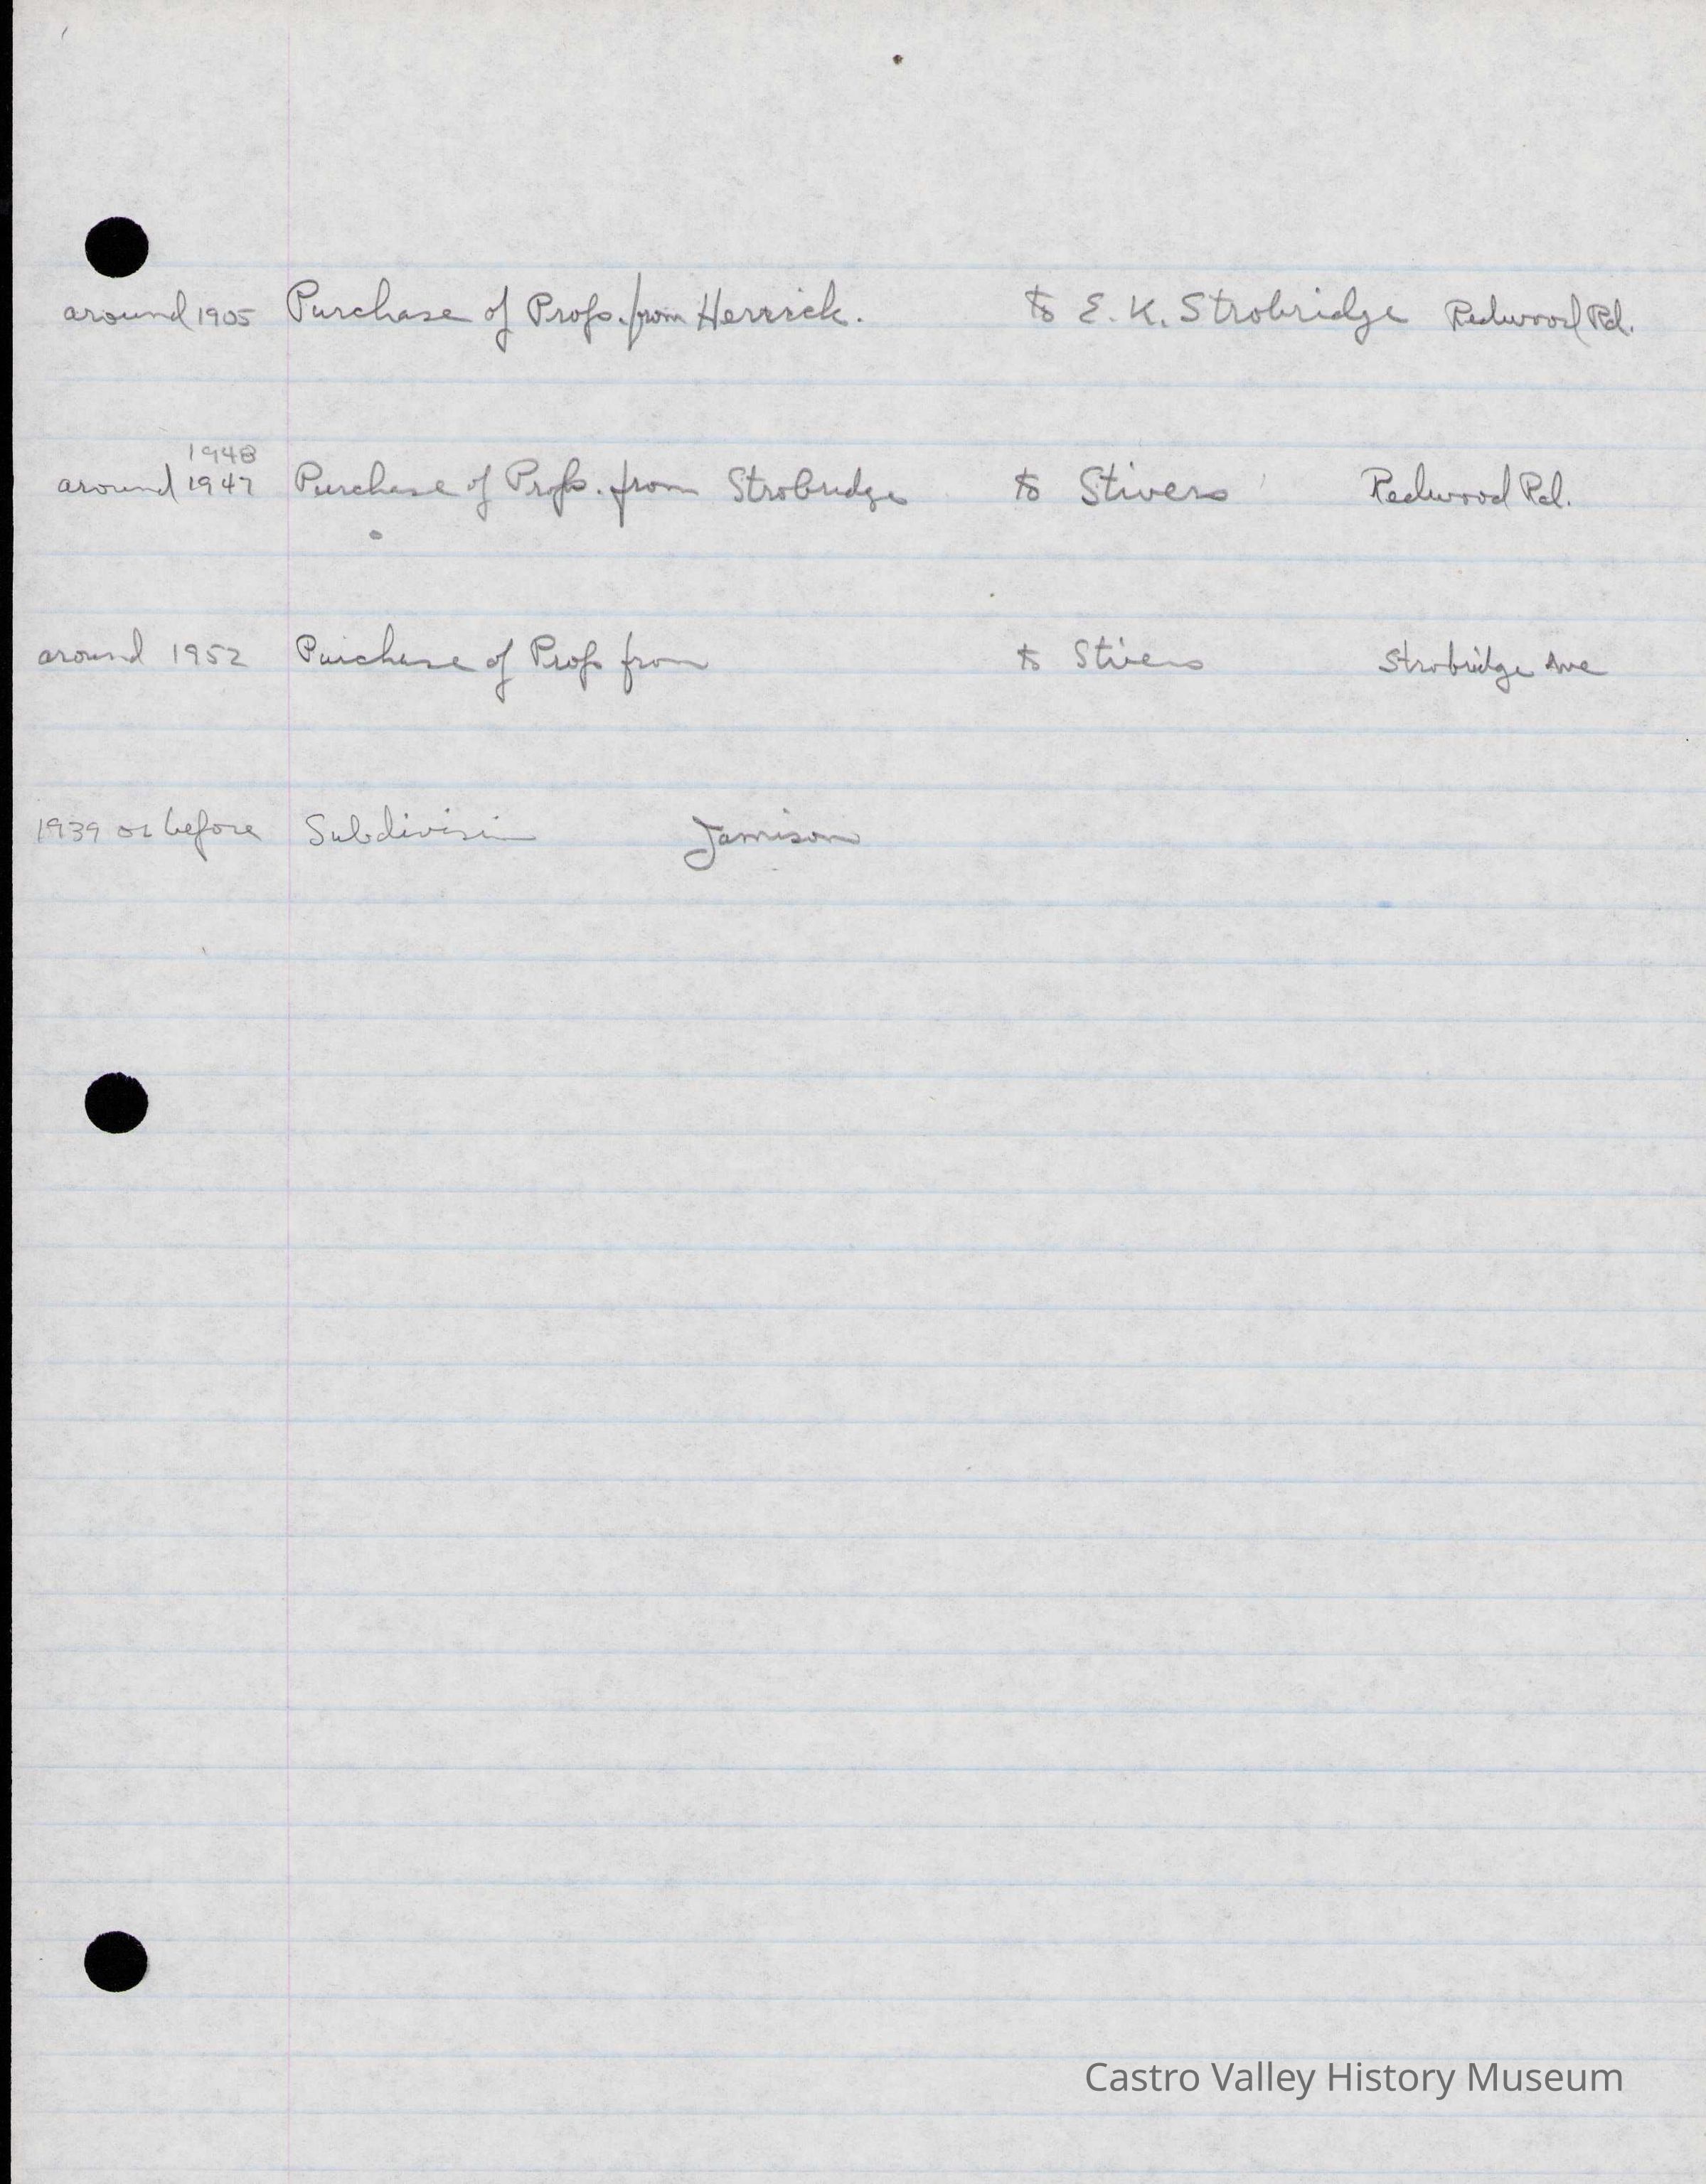 around 1905 Purchase of Prop. from Herrick. to E. K. Strobridge Redwood Rd.
1948
around 1947 Purchase of Prop. from Strobridge to Stivers Redwood Rd.
around 1952 Purchase of Prop from to Stivers Strobridge Ave
1939 or before Subdivision Jamison
Castro Valley History Museum